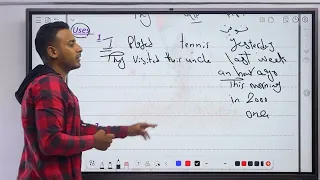 Uses
1 I Played tennis yesterday
They visited this uncle last week
an hour ago
This morning
in 2000
one